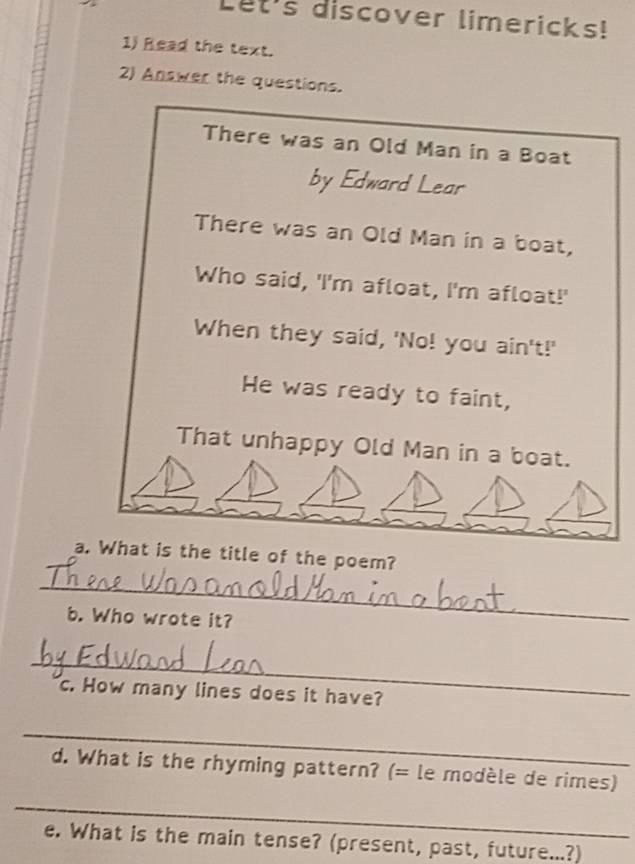 Let's discover limericks!
1) Read the text.
2) Answer the questions.
There was an Old Man in a Boat
by Edward Lear
There was an Old Man in a boat,
Who said, 'I'm afloat, I'm afloat!'
When they said, 'No! you ain't!'
He was ready to faint,
That unhappy Old Man in a boat.
a. What is the title of the poem?
There Was an old Man in a boat.
b. Who wrote it?
by Edward Lear
c. How many lines does it have?
d. What is the rhyming pattern? (= le modèle de rimes)
e. What is the main tense? (present, past, future...?)